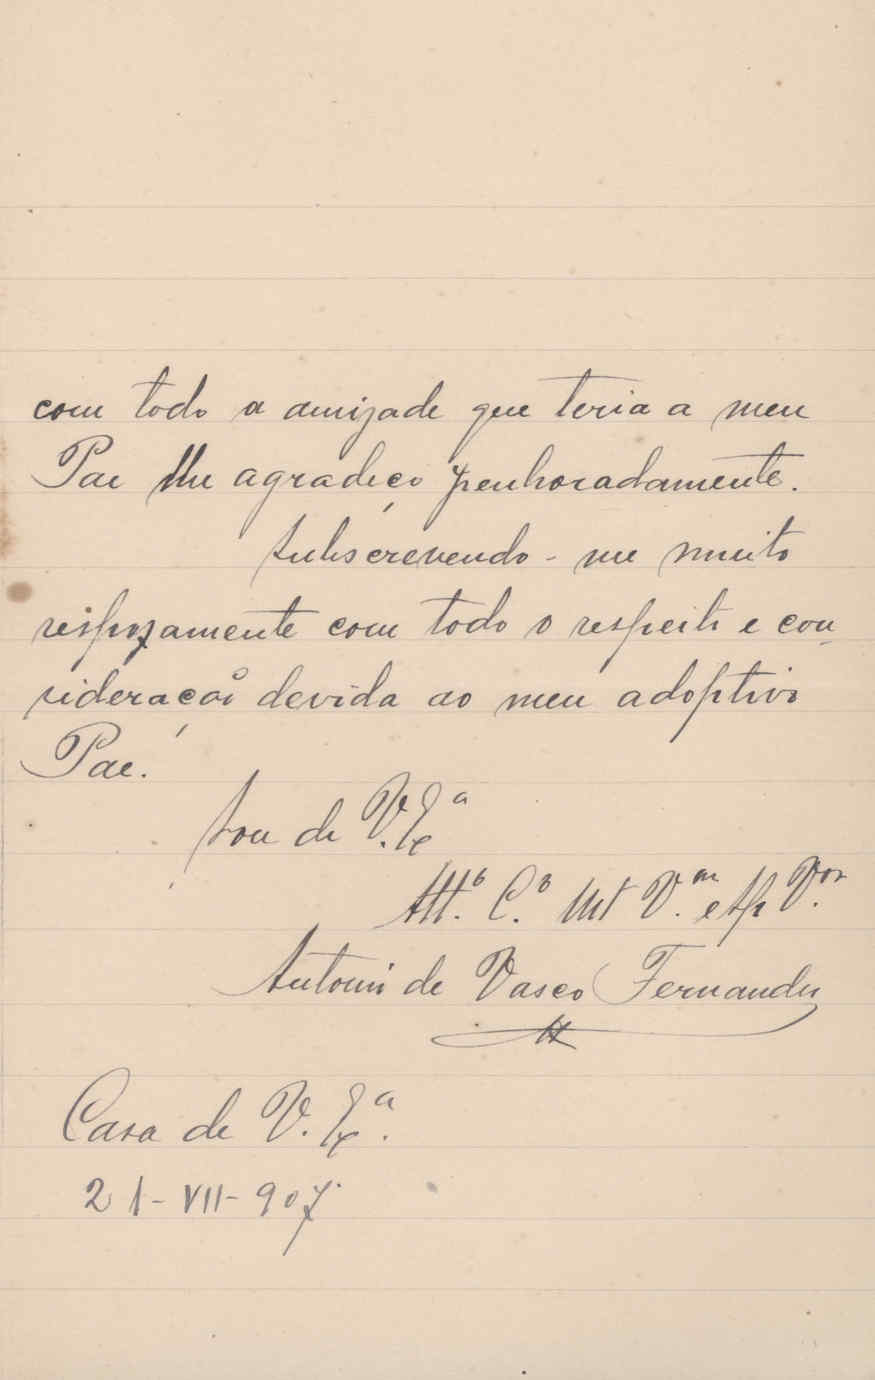 com todo a amizade que teria a meu
Pae lhe agradeço penhoradamente.
Subscrevendo-me muito
com todo o respeito e con-
sideração devida ao meu adoptivo
Pae.
Sou de V. Exª
Att.º C.º Mt V.or e V.or
Antonio de Vasco Fernandes
Casa de V. Exª.
21-VII-907